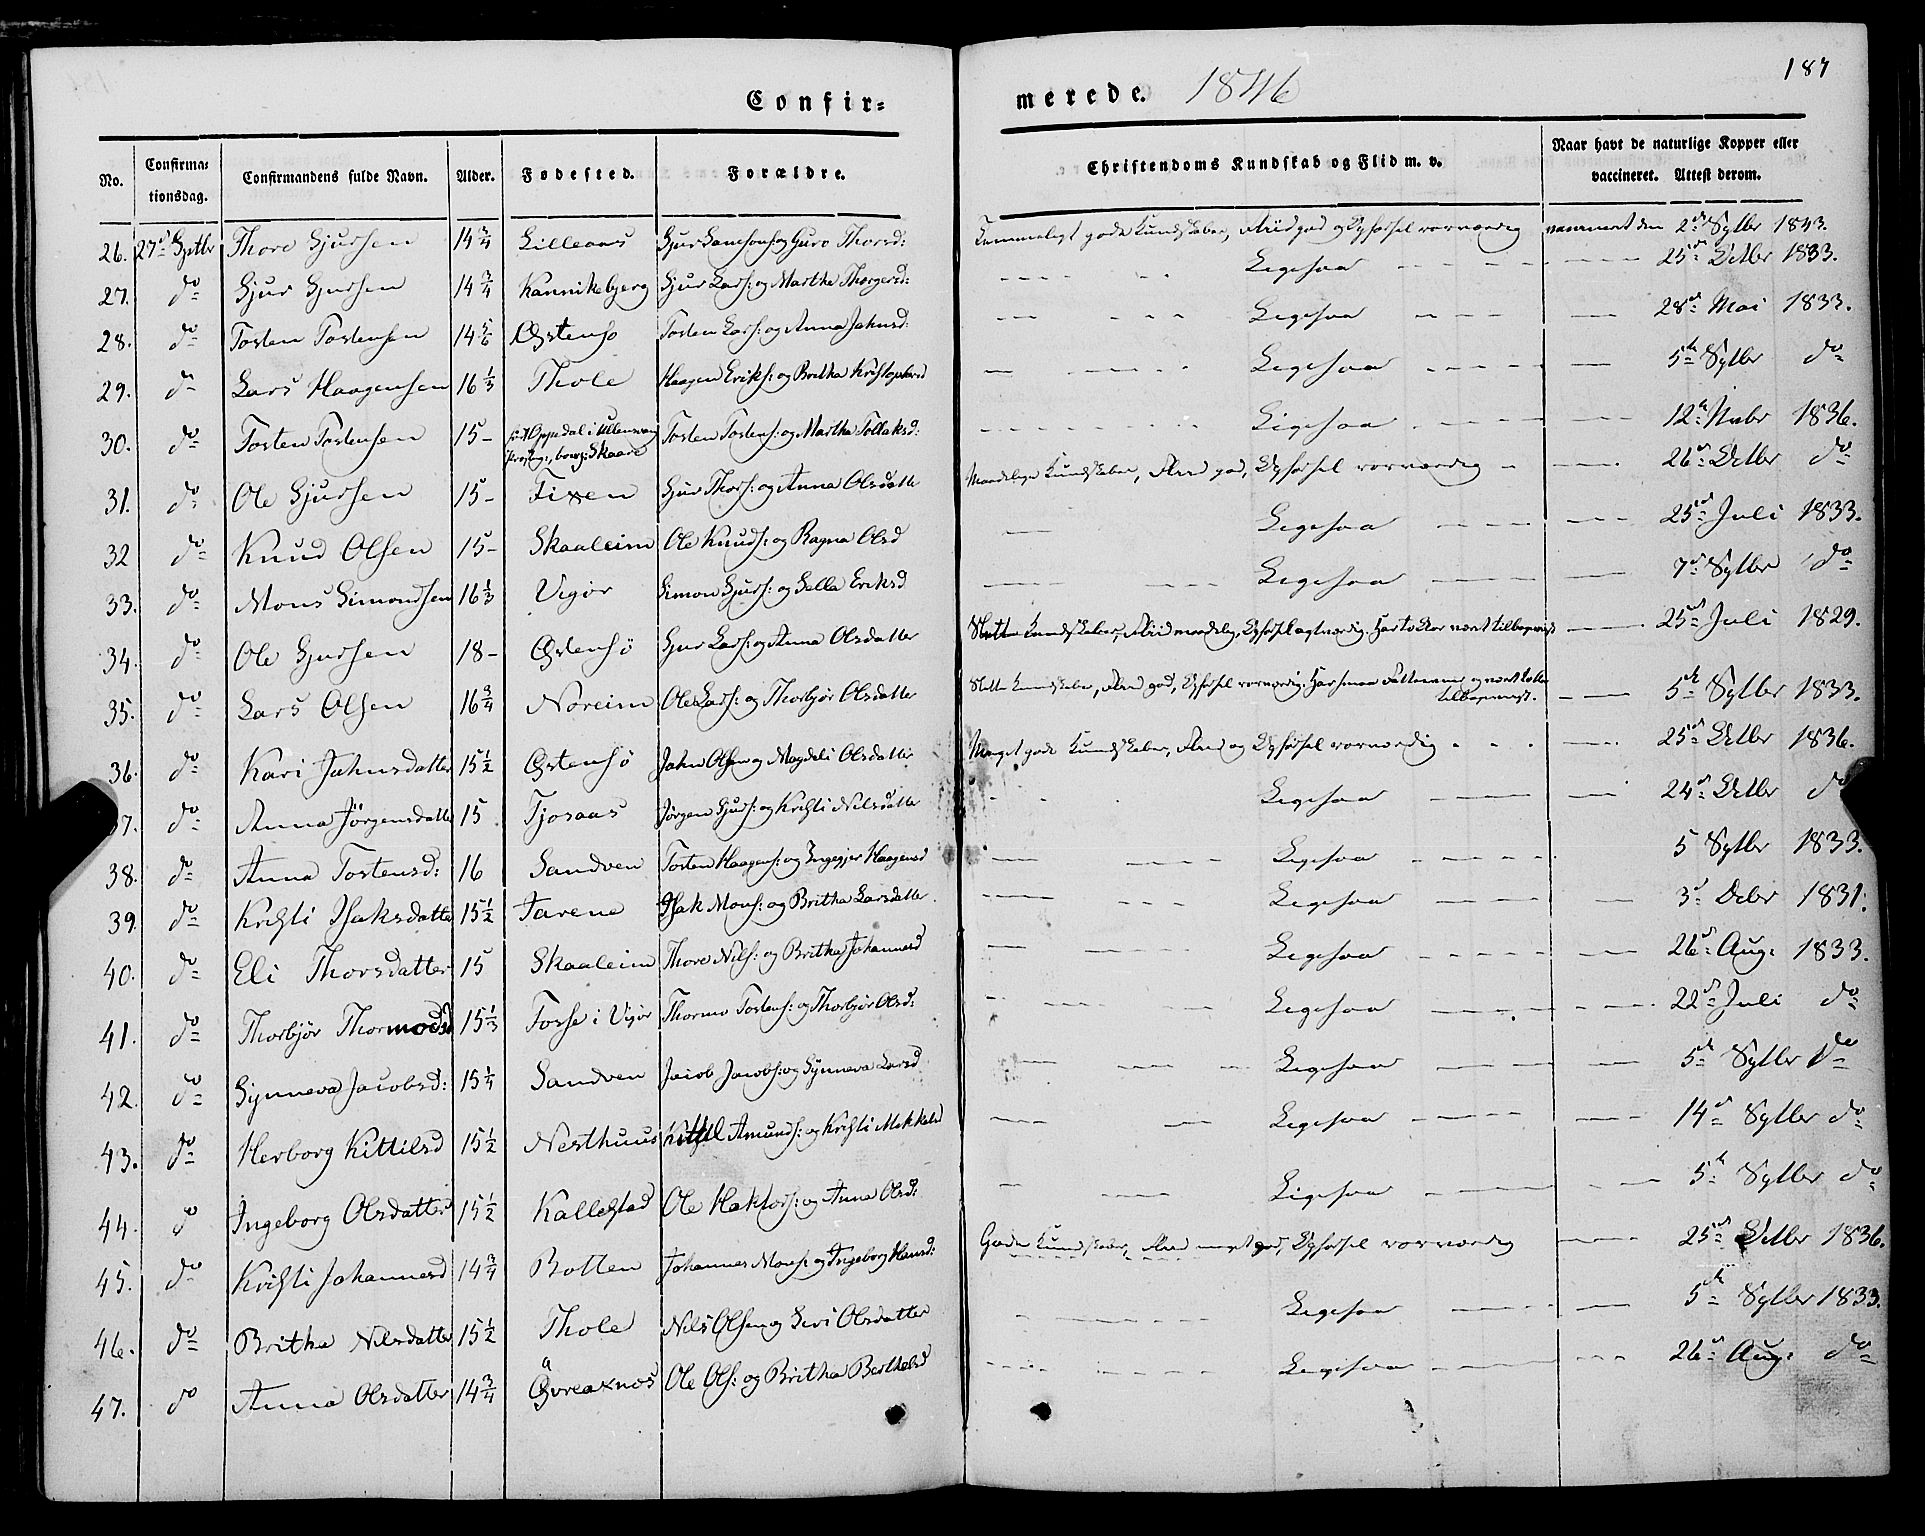 187
Confir- merede. 1846
No. Confirmationsdag. Confirmandens fulde Navn. Alder. Fødested. Forældre. Christendoms Kundskab og Flid m. v. Naar havt de naturlige Kopper eller vaccineret. Attest derom.
26. 27de Sptbr Thore Sjursen 14 3/4 Lilleaas Sjur Samsons: og Guro Thorsd: Temmeligt gode Kundskaber, Flid god og Opførsel rosværdig vaccineret den 2de Sptbr 1843.
27. do Sjur Sjursen 14 3/4 Kannikebjerg Sjur Lars: og Martha Thorgersd: Ligesaa 25de Octbr 1833.
28. do Torsten Torstensen 14 5/6 Østensø Torsten Lars: og Anna Jahnsd: Ligesaa 28de Mai 1833.
29. do Lars Haagensen 16 1/3 Thole Haagen Eriks: og Britha Kristophersd Ligesaa 5te Sptbr do
30. do Torsten Torstensen 15 - Oppedal i Ullensvang Præstegj:, boes: Skaare Torsten Torstens: og Martha Tollaksd: Ligesaa 12te Nvbr 1836.
31. do Ole Sjursen 15 - Fixen Sjur Thors: og Anna Olsdatte Maadelige Kundskaber, Flid god, Opførsel rosværdig 26de Octbr do
32 do Knud Olsen 15 - Skaaleim Ole Knuds: og Ragna Olsd Ligesaa 25de Juli 1833.
33. do Mons Simondsen 16 1/3 Vigør Simon Sjurs: og Sella Eriksd Ligesaa 7de Sptbr do
34. do Ole Sjursen 18 - Østensø Sjur Lars: og Anna Olsdatter Slette Kundskaber, Flid maadelig, Opførsel agtværdig. Har to Aar været tilbageviist 25de Juli 1829.
35. do Lars Olsen 16 3/4 Noreim Ole Lars: og Thorbjør Olsdatter Slette Kundskaber, Flid god, Opførsel rosværdig. Har smaa Fatteevner og været tilbageviist. 5te Sptbr 1833.
36. do Kari Jahnsdatter 15 1/2 Østensø Jahn Olsen og Magdeli Olsdatter Meget gode Kundskaber, Flid og Opførsel rosværdig 25de Octbr 1836.
37. do Anna Jörgensdatter 15 Tjosaas Jørgen Sjurs: og Kristi Nilsdatter Ligesaa 24de Octbr do
38. do Anna Torstensd: 16 Sandven Torsten Haagens: og Ingegjer Haagensd Ligesaa 5 Sptbr 1833.
39. do Kristi Isaksdatter 15 1/2 Tarene Isak Mons: og Britha Larsdatter Ligesaa 3de Dcbr 1831.
40. do Eli Thorsdatter 15 Skaaleim Thore Nils: og Britha Johannesd Ligesaa 26de Aug: 1833.
41. do Thorbjør Thormodsd 15 1/3 Fosse i Vigør Thormo Torstens: og Thorbjør Olsd: Ligesaa 22de Juli do
42. do Synneva Jacobsd: 15 1/4 Sandven Jacob Jacobs: og Synneva Larsd Ligesaa 5te Sptbr do
43. do Herborg Kittilsd 15 1/2 Nesthuus Kittil Amunds: og Kristi Mikkelsd Ligesaa 14de Sptbr do
44. do Ingeborg Olsdatter 15 1/2 Kallestad Ole Haktors: og Anna Olsd: Ligesaa 5te Sptbr do
45. do Kristi Johannesd 14 3/4 Botten Johannes Mons: og Ingeborg Hansd: Gode Kundskaber, Flid meget god, Opførsel rosværdig 25de Octbr 1836.
46. do Britha Nilsdatter 15 1/2 Thole Nils Olsen og Sevi Olsdatter Ligesaa 5te Sptbr 1833.
47. do Anna Olsdatter 14 3/4 Øvreaxnes Ole Ols: og Britha Berthelsd Ligesaa 26de Aug: do